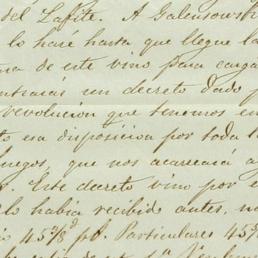 del Lafite. A Galensowsk
lo haré hasta que llegue la
ma de este vino para carga
ontrarás un decreto dado p
revolucion que tenemos en
to esa disposicion por toda l
uegos, que nos acarreara a
Este decreto vino por e
lo habia recibido antes, no
45 7/8 d p%. Particulares 45